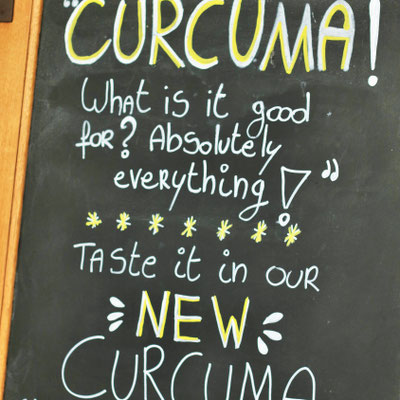 "CURCUMA!
What is it good
for? Absolutely
everything!"
TASTE it in OUR
NEW
CURCUMA